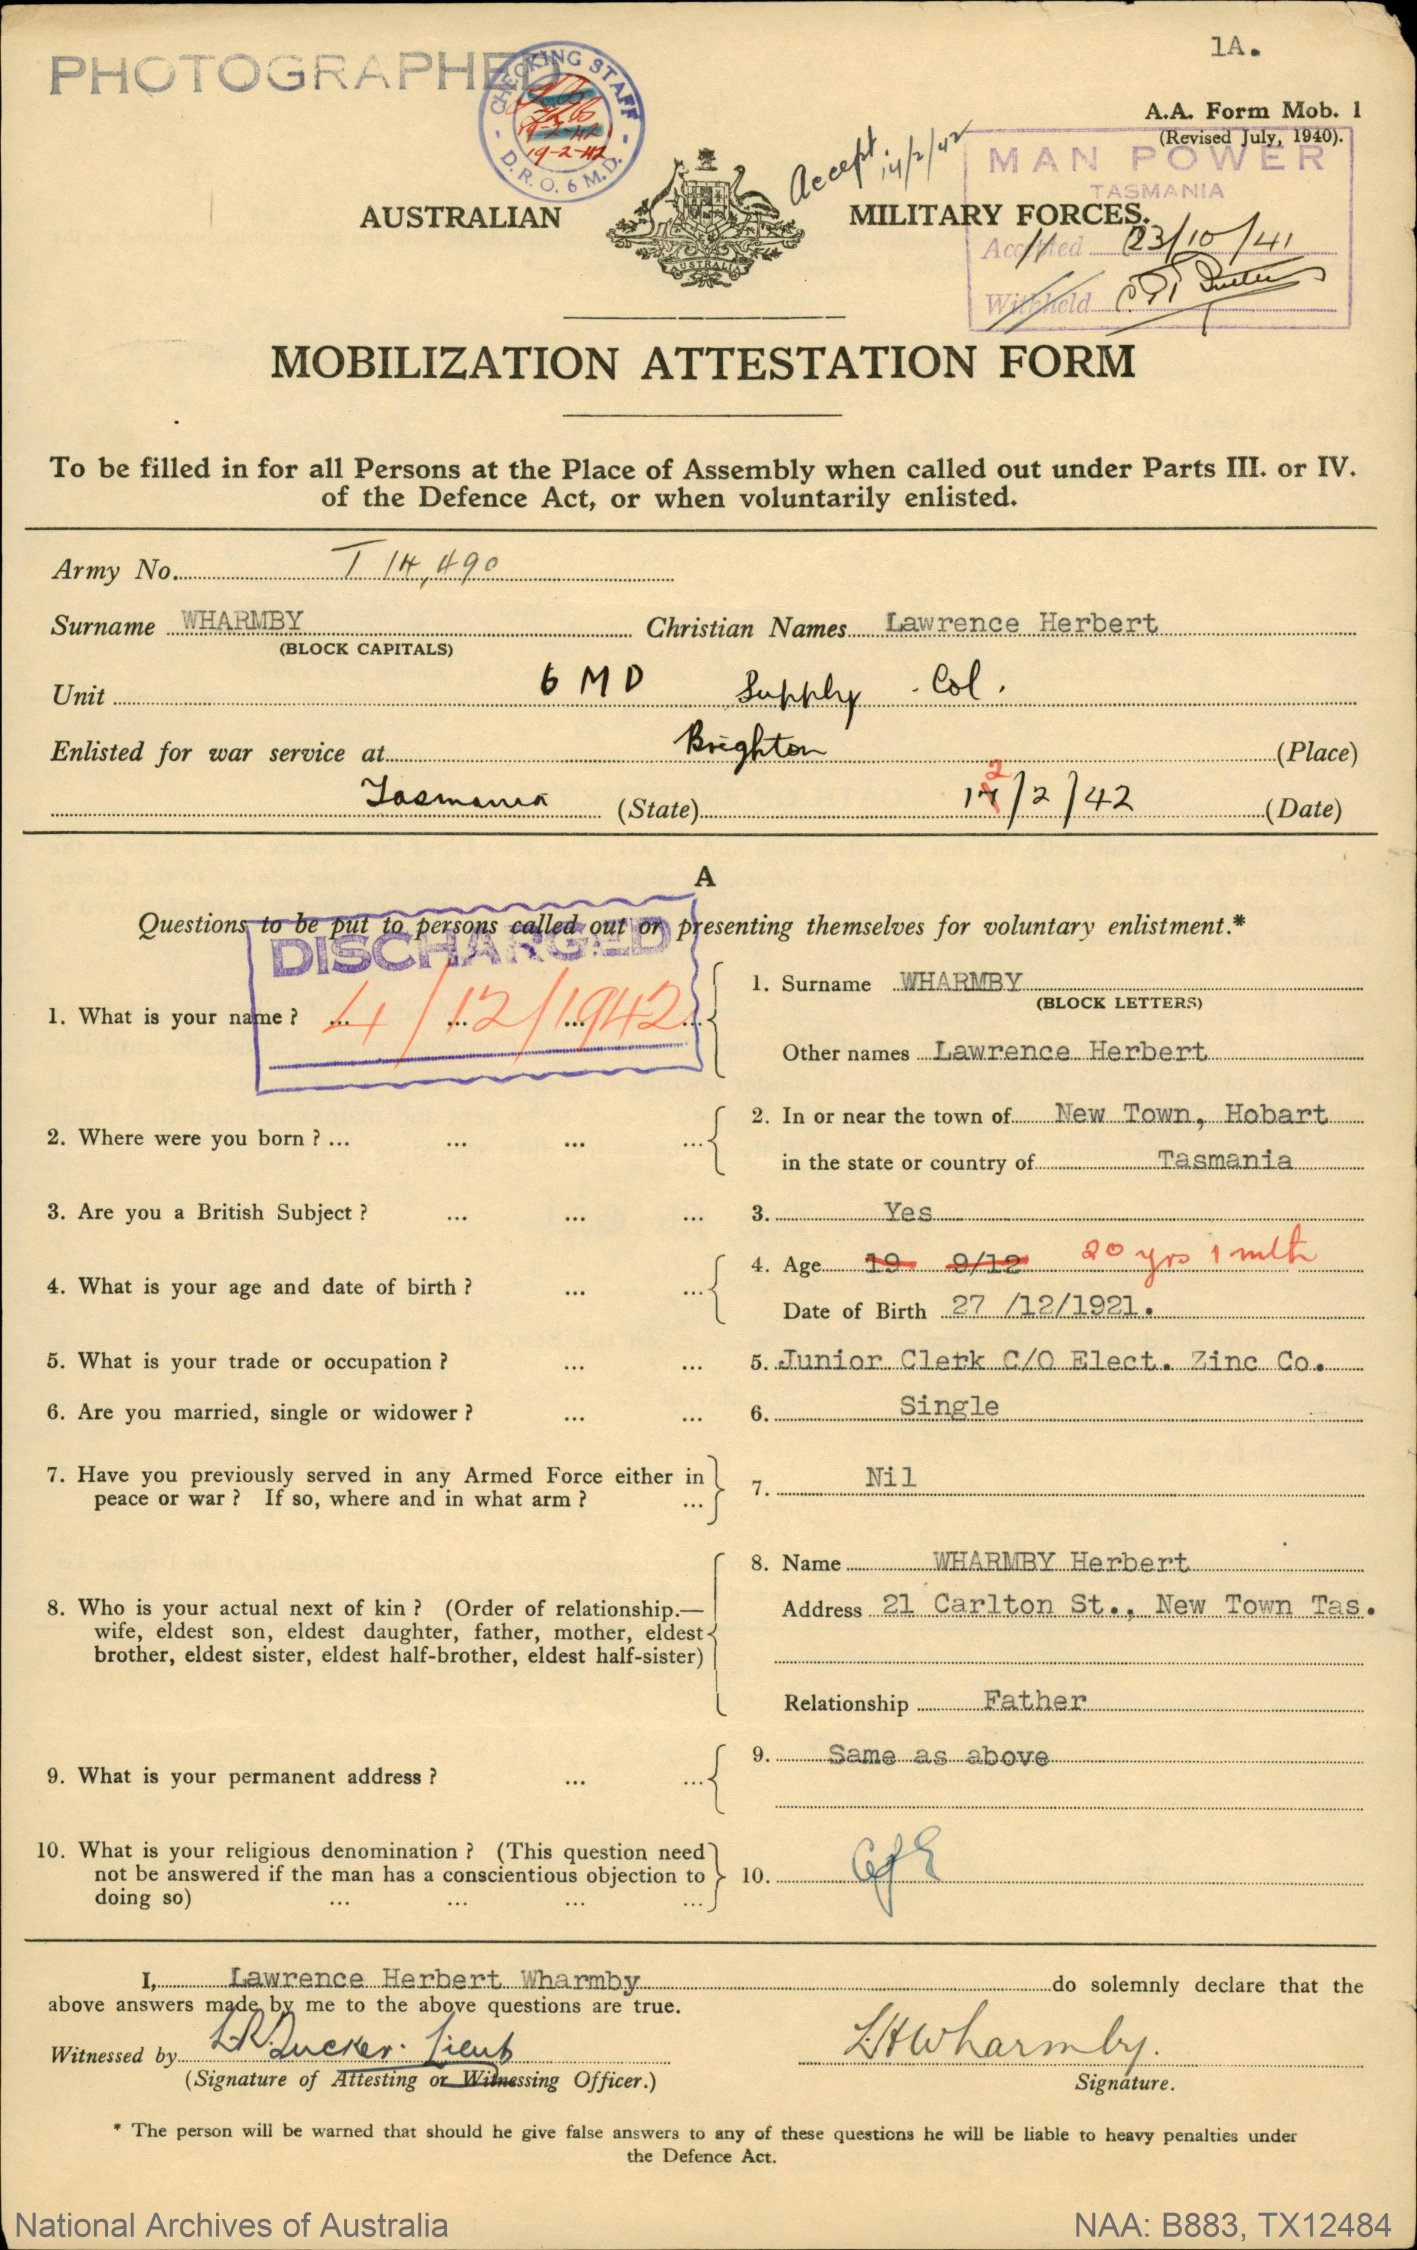 1A.
PHOTOGRAPHED
CHECKING STAFF
19-2-42
19-2-42
D.R.O. 6 M.D.
A.A. Form Mob. 1
(Revised July, 1940).
Accept. 14/2/42
MAN POWER
TASMANIA
AUSTRALIAN MILITARY FORCES.
AUSTRALIA
Accepted 23/10/41
Withheld
MOBILIZATION ATTESTATION FORM
To be filled in for all Persons at the Place of Assembly when called out under Parts III. or IV.
of the Defence Act, or when voluntarily enlisted.
Army No. T 14,490
Surname WHARMBY Christian Names Lawrence Herbert
(BLOCK CAPITALS)
Unit 6 MD Supply Col.
Enlisted for war service at Brighton (Place)
Tasmania (State) 12/2/42 (Date)
A
Questions to be put to persons called out or presenting themselves for voluntary enlistment.*
DISCHARGED
4/12/1942
1. What is your name? ... ... ... ...
1. Surname WHARMBY
(BLOCK LETTERS)
Other names Lawrence Herbert
2. Where were you born? ... ... ... ...
2. In or near the town of New Town, Hobart
in the state or country of Tasmania
3. Are you a British Subject? ... ... ... 3. Yes
4. What is your age and date of birth? ... ...
4. Age 19 9/12 20 yrs 1 mth
Date of Birth 27 /12/1921.
5. What is your trade or occupation? ... ... 5. Junior Clerk C/O Elect. Zinc Co.
6. Are you married, single or widower? ... ... 6. Single
7. Have you previously served in any Armed Force either in
peace or war? If so, where and in what arm? ...
7. Nil
8. Who is your actual next of kin? (Order of relationship.—
wife, eldest son, eldest daughter, father, mother, eldest
brother, eldest sister, eldest half-brother, eldest half-sister)
8. Name WHARMBY Herbert
Address 21 Carlton St., New Town Tas.
Relationship Father
9. What is your permanent address? ... ...
9. Same as above
10. What is your religious denomination? (This question need
not be answered if the man has a conscientious objection to
doing so) ... ... ... ...
10. C of E
I, Lawrence Herbert Wharmby do solemnly declare that the
above answers made by me to the above questions are true.
Witnessed by L.R. Tucker. Lieut L H Wharmby.
(Signature of Attesting or Witnessing Officer.) Signature.
* The person will be warned that should he give false answers to any of these questions he will be liable to heavy penalties under
the Defence Act.
National Archives of Australia NAA: B883, TX12484